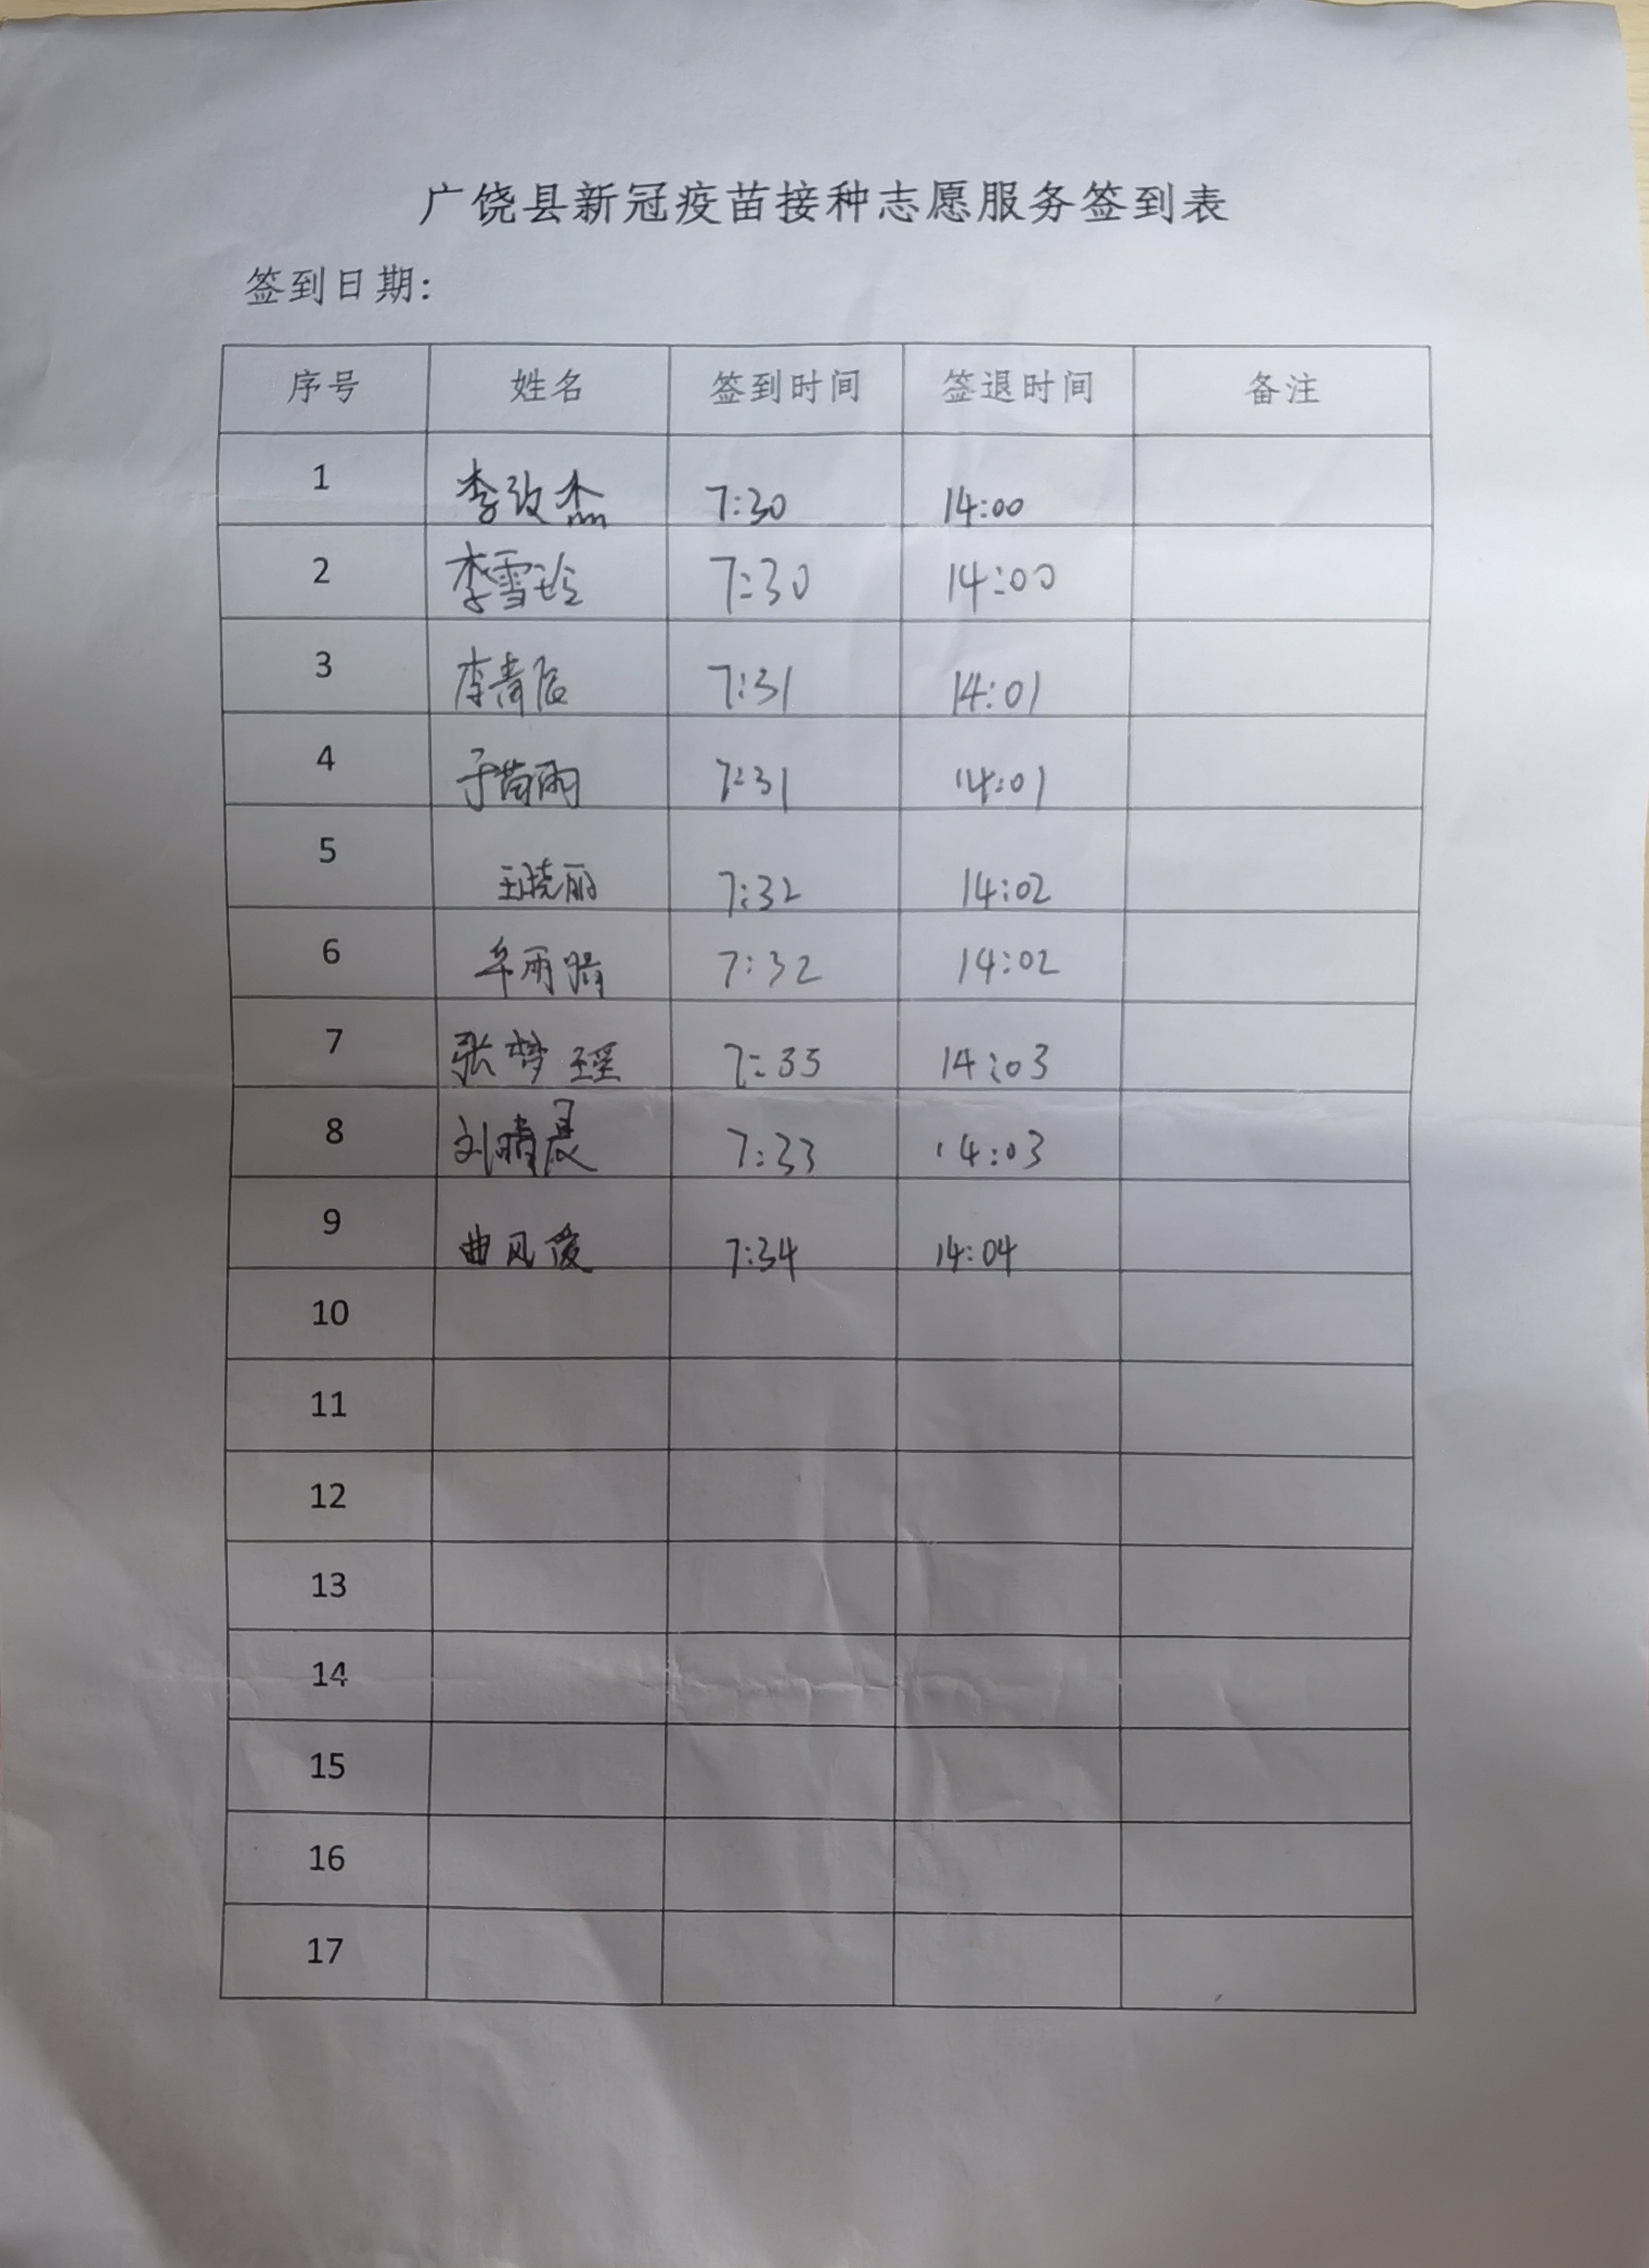 广饶县新冠疫苗接种志愿服务签到表
签到日期:
序号 姓名 签到时间 签退时间 备注
1 李政杰 7:30 14:00
2 李雪玲 7:30 14:00
3 李青辰 7:31 14:01
4 于苗雨 7:31 14:01
5 王晓丽 7:32 14:02
6 牟雨晴 7:32 14:02
7 张梦瑶 7:33 14:03
8 刘晴晨 7:33 14:03
9 曲风俊 7:34 14:04
10
11
12
13
14
15
16
17